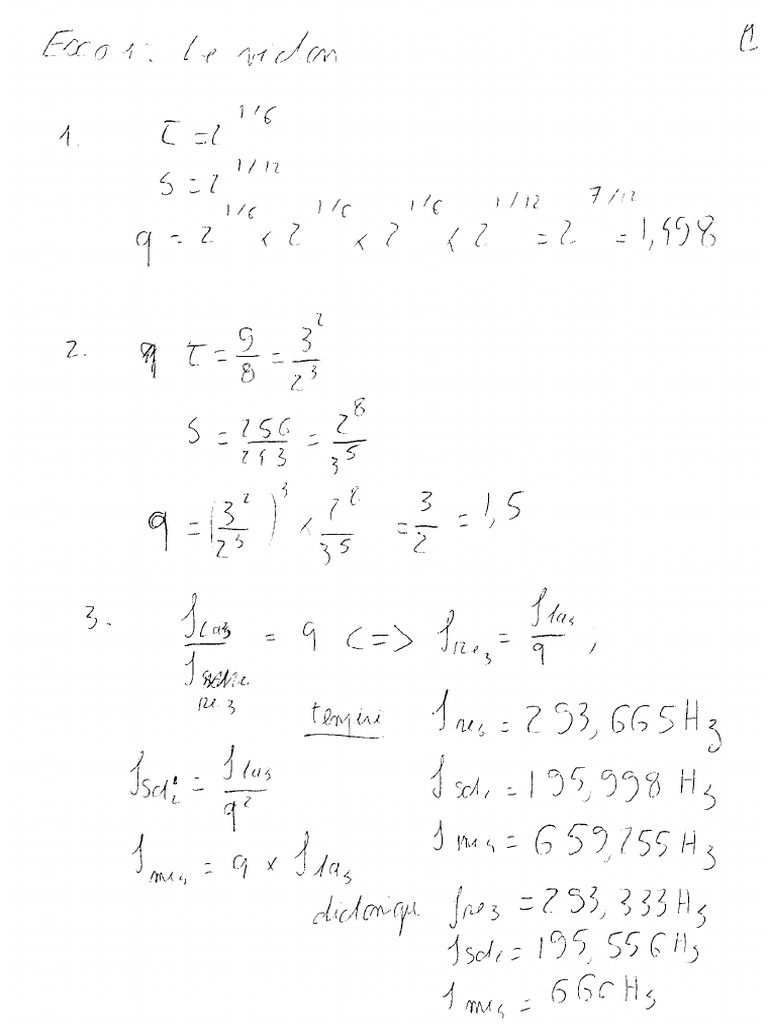 Exo 1: Le violon
1
1. τ = 2^{1/6}
s = 2^{1/12}
q = 2^{1/6} × 2^{1/6} × 2^{1/6} × 2^{1/12} = 2^{7/12} = 1,498
2. τ = 9/8 = 3^2/2^3
s = 256/243 = 2^8/3^5
q = (3^2/2^3)^3 × 2^8/3^5 = 3/2 = 1,5
3. f_{la3}/f_{re3} = q <=> f_{re3} = f_{la3}/q ,
tempéré f_{re3} = 293,665 Hz
f_{sol2} = f_{la3}/q^2
f_{sol2} = 195,998 Hz
f_{mi4} = 659,255 Hz
f_{mi4} = q × f_{la3}
diatonique f_{re3} = 293,333 Hz
f_{sol2} = 195,556 Hz
f_{mi4} = 660 Hz